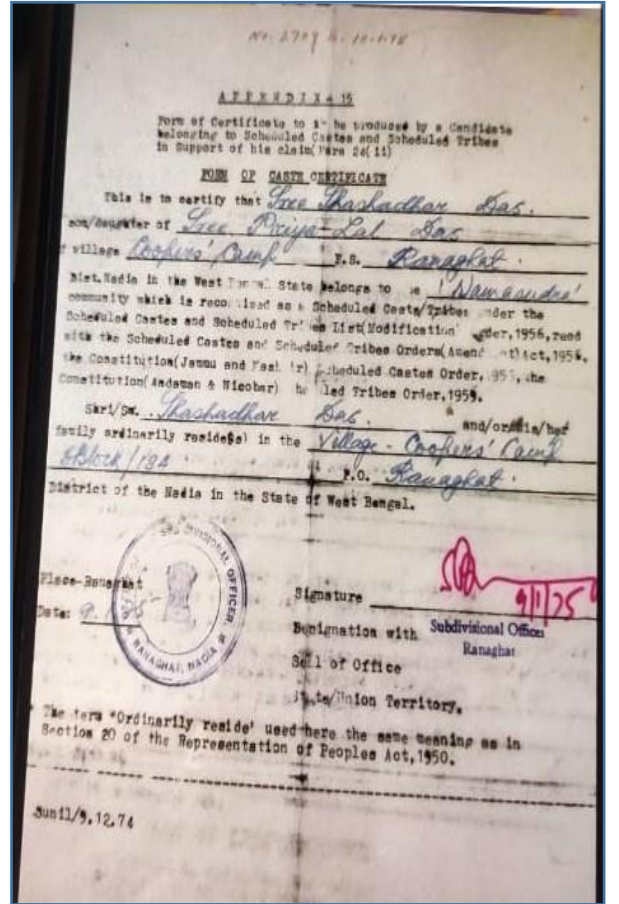 APPENDIX - 15
Form of Certificate to be produced by a Candidate
belonging to Scheduled Castes and Scheduled Tribes
in Support of his claim(Para 24(ii)
FORM OF CASTE CERTIFICATE
This is to certify that Sree Shashadhar Das.
son/daughter of Sree Priya-Lal Das
village Coopers' Camp P.S. Ranaghat.
Dist.Nadia in the West State belongs to 'Namasudra'
community which is recognised as a Scheduled Caste/Tribes under the
Scheduled Castes and Scheduled Tribes List(Modification) Order,1956,read
with the Scheduled Castes and Scheduled Tribes Orders(Amend )Act,1956,
the Constitution(Jammu and Kashmir) Scheduled Castes Order, the
Constitution(Andaman & Nicobar) led Tribes Order,1959.
Shri/Sm. Shashadhar Das. and/or his/her
family ordinarily reside(s) in the Village - Coopers' Camp
Block/184 P.O. Ranaghat.
District of the Nadia in the State of West Bengal.
SUB DIVISIONAL OFFICER
RANAGHAT, NADIA
Place-Ranaghat
Date: 9.
Signature
9/1/75
Designation with Subdivisional Officer
Ranaghat
Sell of Office
State/Union Territory.
* The term 'Ordinarily reside' used here the same meaning as in
Section 20 of the Representation of Peoples Act,1950.
Sunil/9.12.74